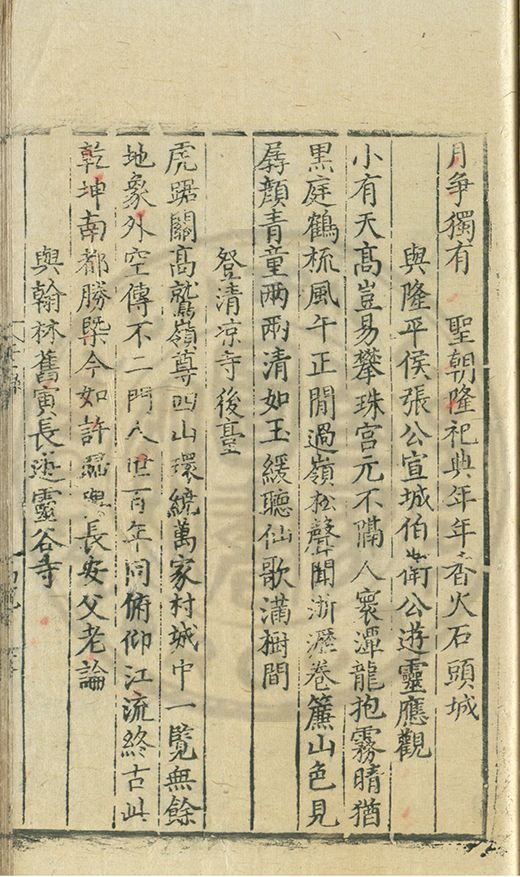 月爭獨有　聖朝隆祀典年年香火石頭城
與隆平侯張公宣城伯衛公遊靈應觀
小有天髙豈易攀珠宫元不隔人寰潭龍抱霧晴猶
黒庭鶴梳風午正閒過嶺松聲聞淅瀝卷簾山色見
孱顔青童兩兩清如玉緩聽仙歌滿樹間
登清凉寺後臺
虎踞關髙鷲嶺尊四山環繞萬家村城中一覧無餘
地象外空傳不二門人世百年同俯仰江流終古此
乾坤南都勝槩今如許歸與長安父老論
與翰林舊寅長遊靈谷寺